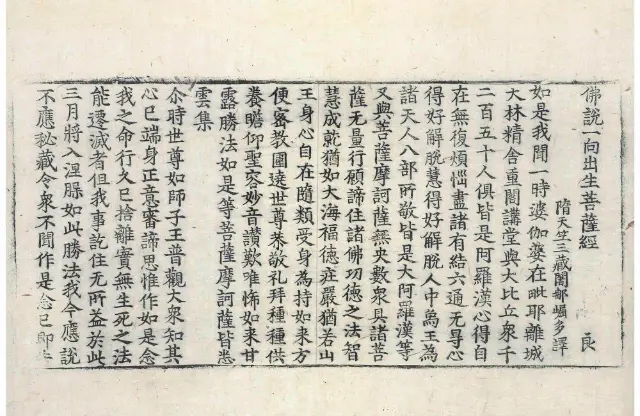 佛說一向出生菩薩經
隋天竺三藏闍那崛多譯
良
如是我聞一時婆伽婆在毗耶離城
大林精舍重閣講堂與大比丘衆千
二百五十人俱皆是阿羅漢心得自
在無復煩惱盡諸有結六通无㝵心
得好解脫慧得好解脫人中爲王爲
諸天人八部所敬皆是大阿羅漢等
又與菩薩摩訶薩無央數衆具諸菩
薩无量行願諦住諸佛功德之法智
慧成就猶如大海福德庄嚴猶若山
王身心自在隨類受身爲持如來方
便密教圍遶世尊恭敬礼拜種種供
養瞻仰聖容妙音讚歎唯悕如來甘
露勝法如是等菩薩摩訶薩皆悉
雲集
尒時世尊如師子王普觀大衆知其
心已端身正意審諦思惟作如是念
我之命行久已捨離實無生死之法
能遷滅者但我事訖住无所益於此
三月將入涅槃如此勝法我今應說
不應秘藏令衆不聞作是念已即